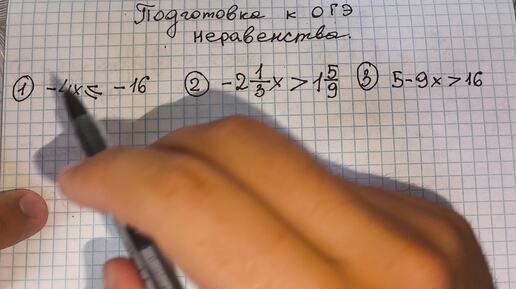 Подготовка к ОГЭ
неравенства.
① -4x ≤ -16 ② -2 1/3 x > 1 5/9 ③ 5-9x > 16